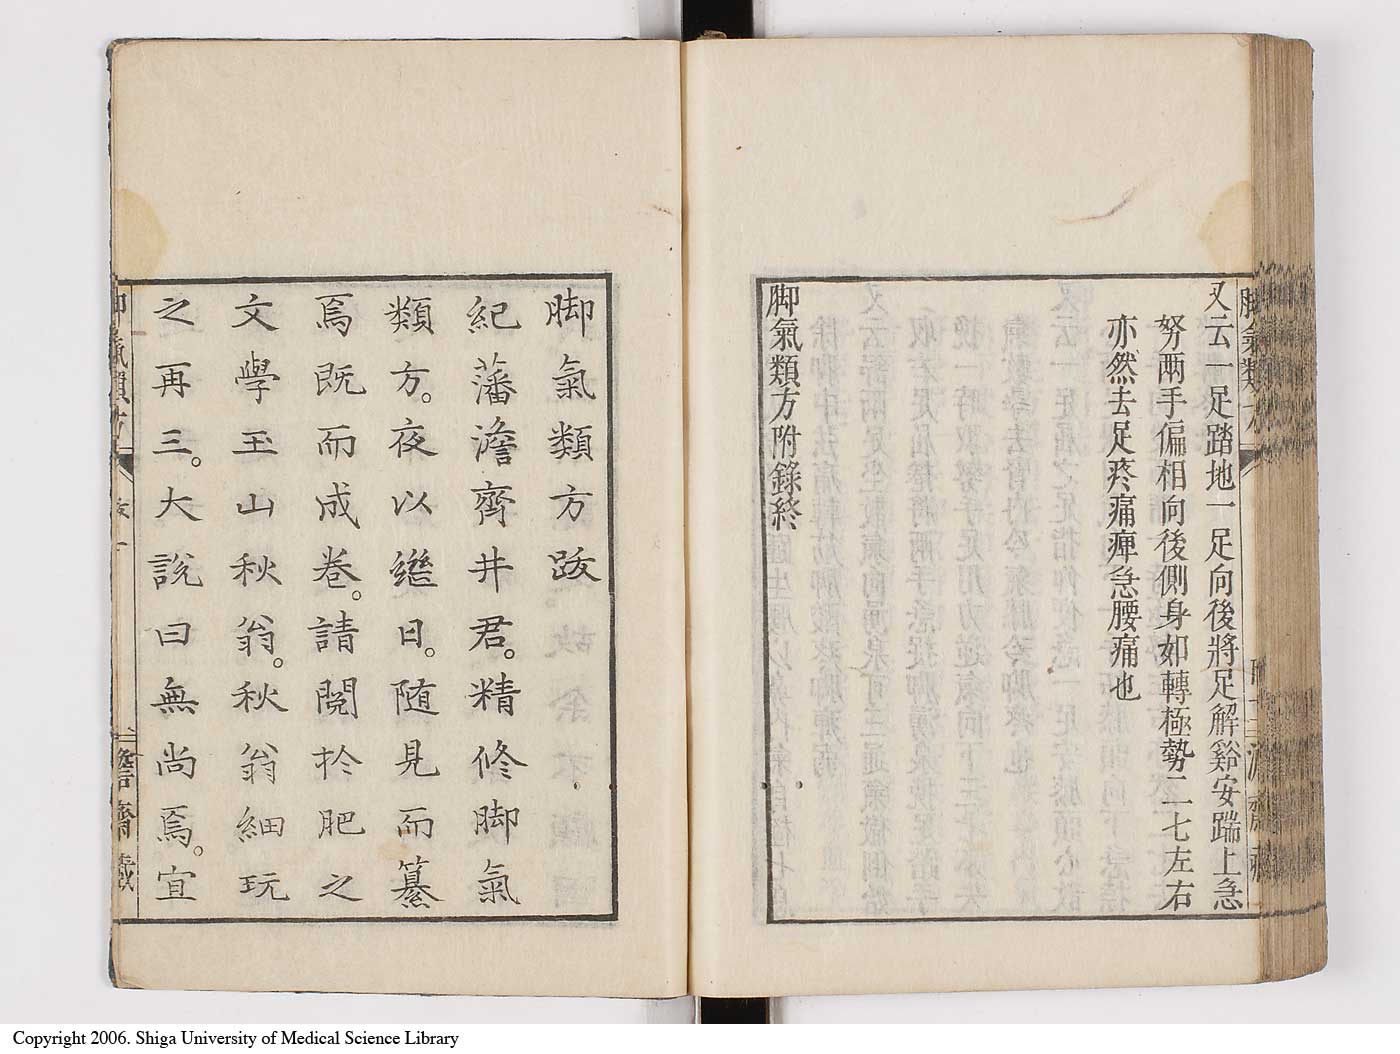 又云一足踏地一足向後將足解谿安踹上急
努兩手偏相向後側身如轉極勢二七左右
亦然去足疼痛痺急腰痛也
脚氣類方附錄終
脚氣類方跋
紀藩澹齊井君。精修脚氣
類方。夜以繼日。随見而纂
焉既而成卷。請閱於肥之
文學玉山秋翁。秋翁細玩
之再三。大說曰無尚焉。宜
脚氣類方
跋一
澹齋藏
Copyright 2006. Shiga University of Medical Science Library